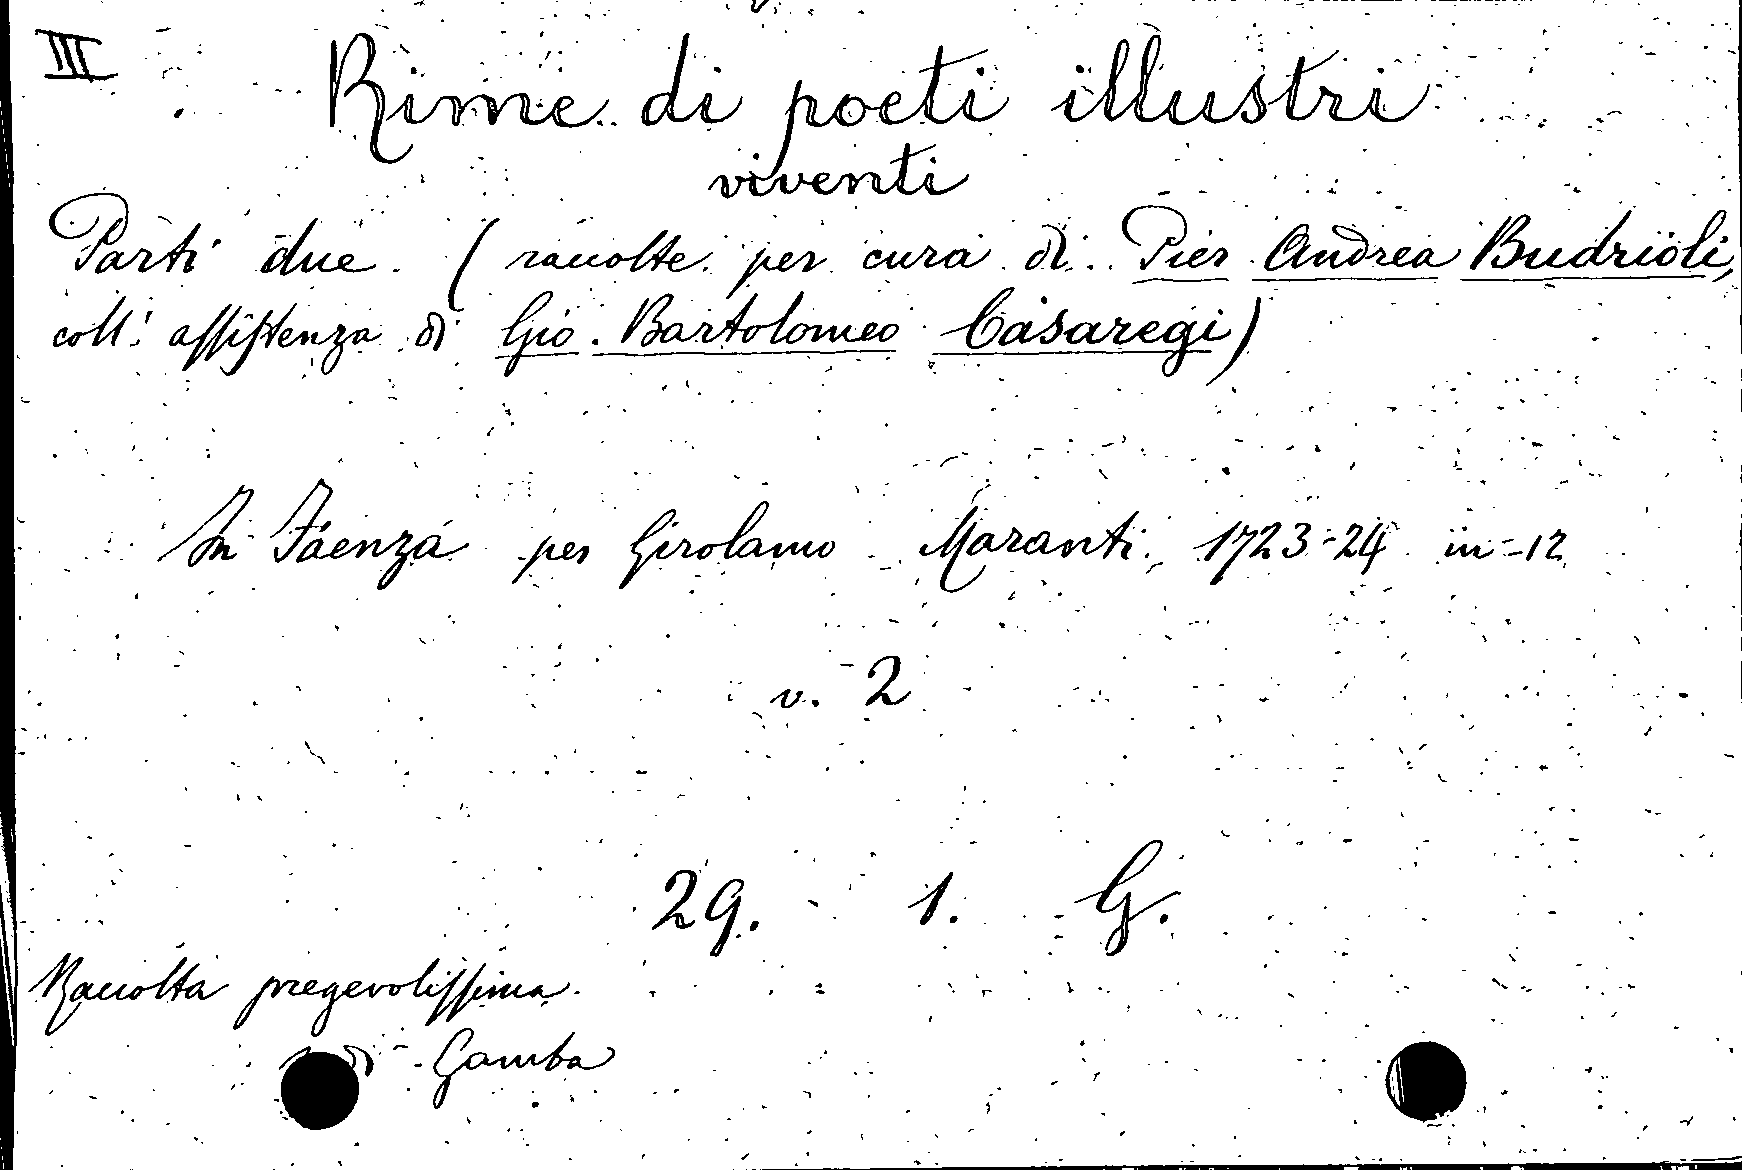 III
Rime di poeti illustri
viventi
Parti due. (raccolte per cura di Pier Andrea Budrioli,
coll' assistenza di Gio. Bartolomeo Casaregi)
In Faenza per Girolamo Maranti, 1723-24 in-12
v. 2
29. 1. G.
Raccolta pregevolissima
Gamba